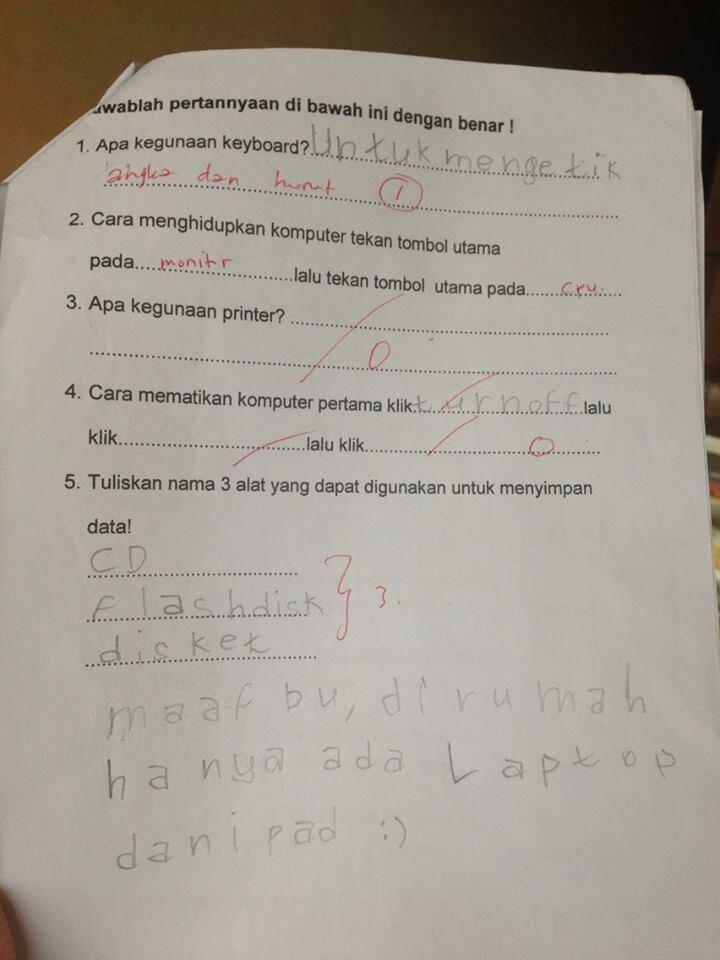 awablah pertannyaan di bawah ini dengan benar !
1. Apa kegunaan keyboard? Untuk mengetik
angka dan huruf 1
2. Cara menghidupkan komputer tekan tombol utama
pada....monitr......................lalu tekan tombol utama pada........cpu....
3. Apa kegunaan printer? ......................................................
0
4. Cara mematikan komputer pertama klik turnoff lalu
klik.................................lalu klik.......................................... 0
5. Tuliskan nama 3 alat yang dapat digunakan untuk menyimpan
data!
CD
Flashdisk } 3.
disket
maaf bu, di rumah
hanya ada Laptop
dan ipad :)